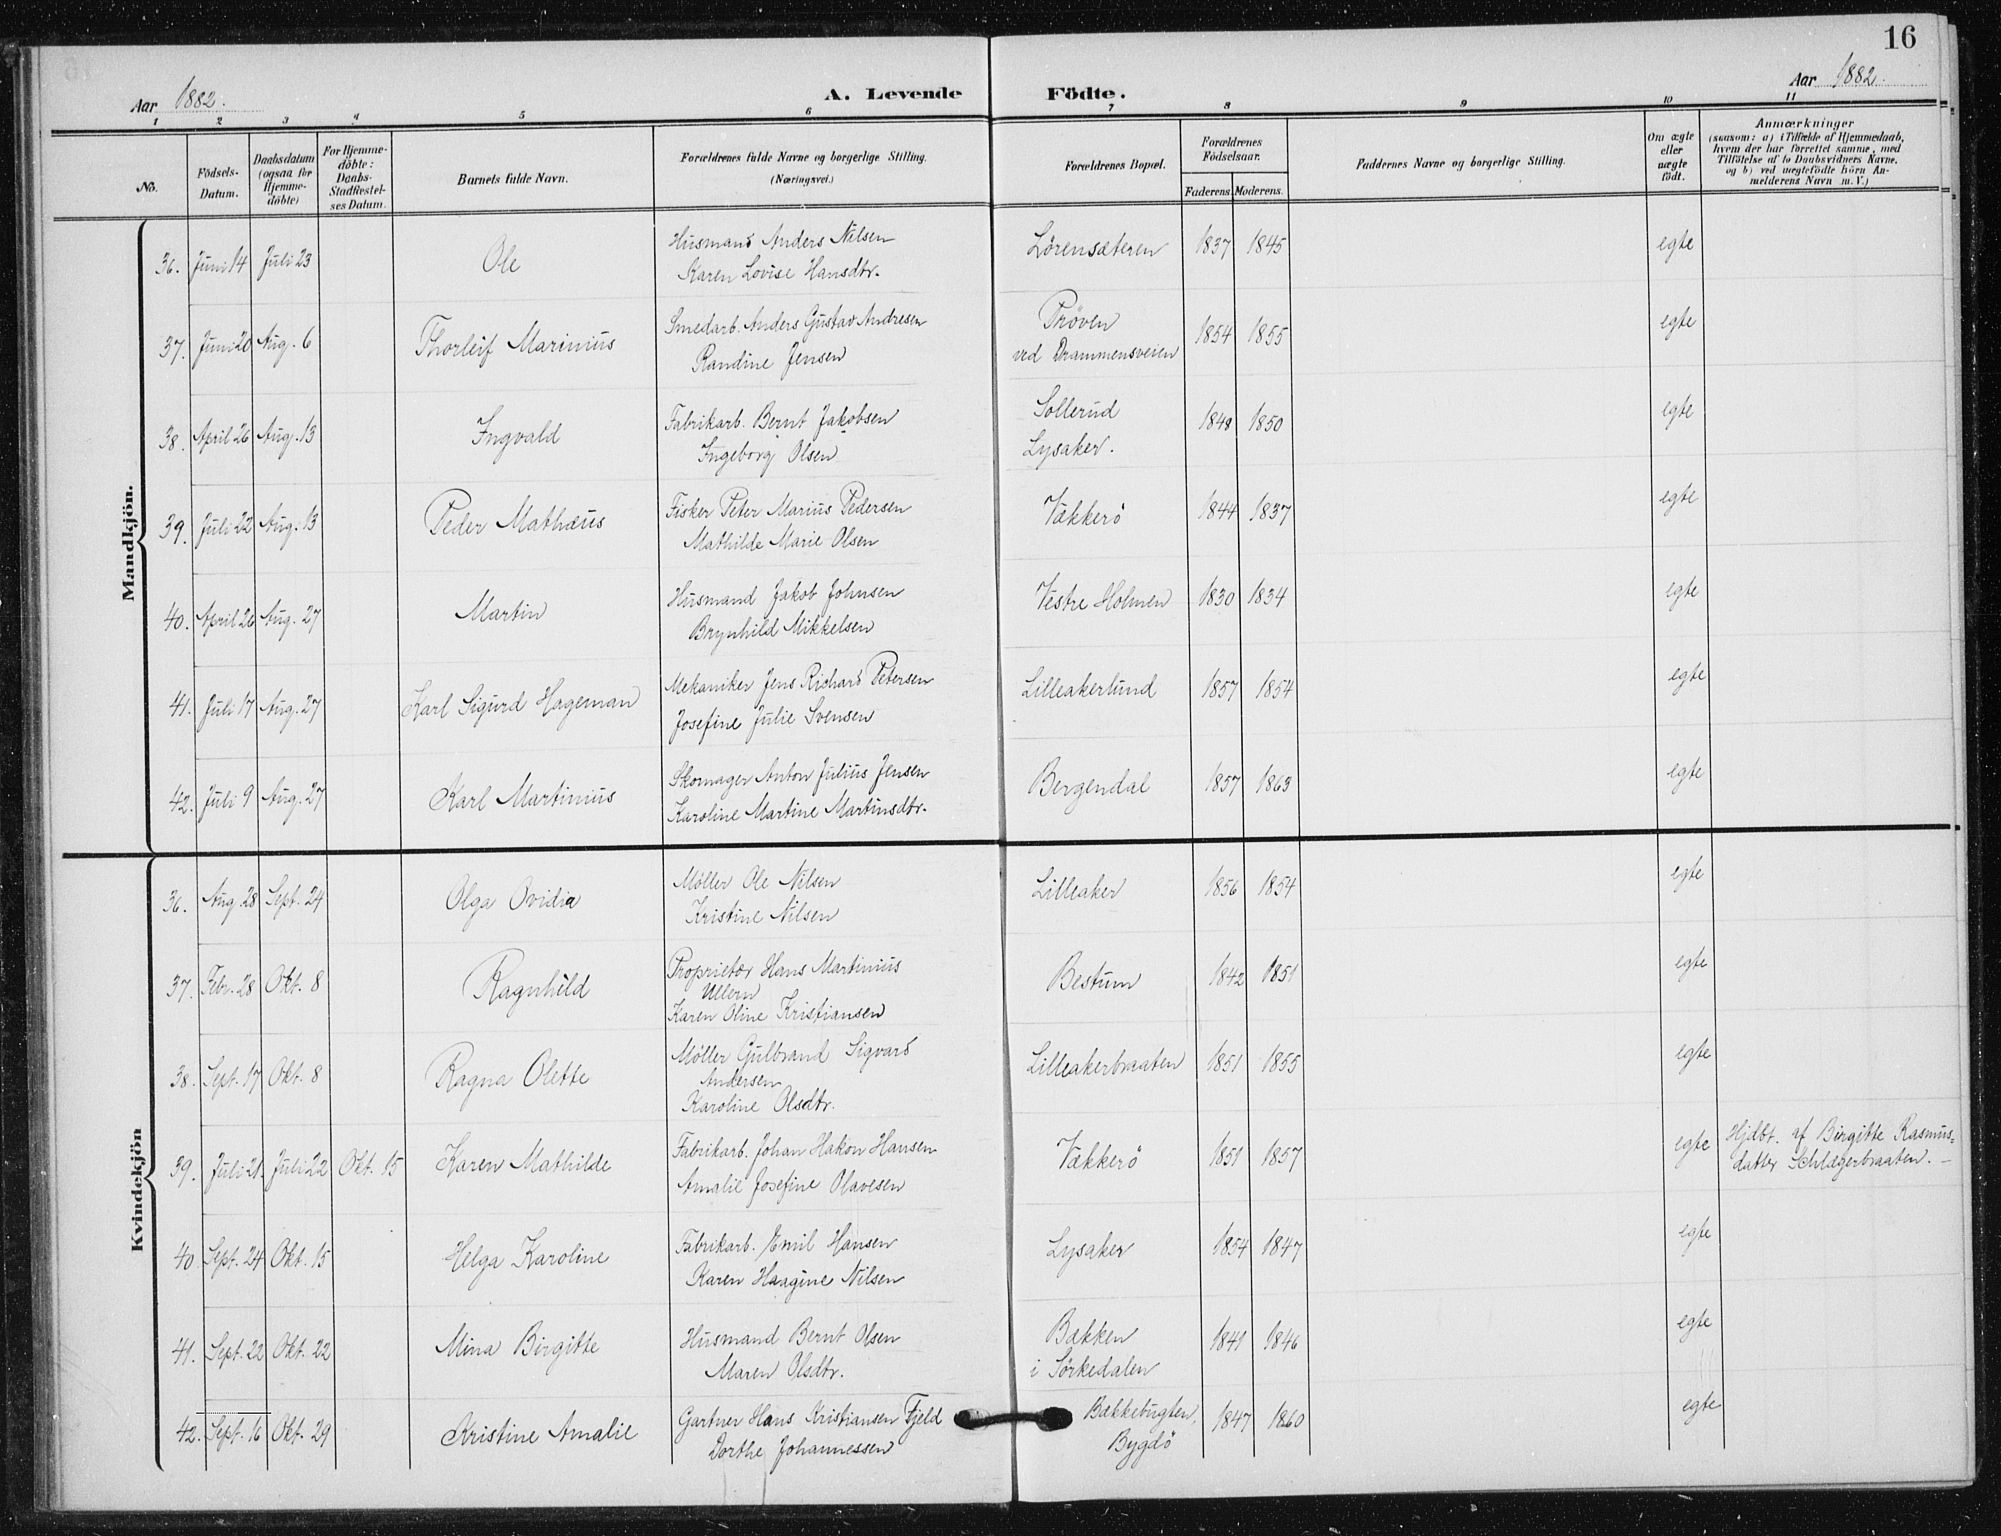 16
Aar 1882.
A. Levende Födte.
Aar 1882.
1 2 3 4 5 6 7 8 9 10 11
No.
Födsels-Datum.
Daabsdatum (ogsaa for Hjemme-döbte)
For Hjemme-döbte: Daabs-Stadfæstel-ses Datum.
Barnets fulde Navn.
Forældrenes fulde Navne og borgerlige Stilling.
(Næringsvei.)
Forældrenes Bopæl.
Forældrenes Födselsaar.
Faderens. Moderens.
Faddernes Navne og borgerlige Stilling.
Om ægte eller uægte födt.
Anmærkninger
(saasom: a) i Tilfælde af Hjemmedaab,
hvem der har forrettet samme, med
Tilföielse af to Daabsvidners Navne.
og b) ved uægtefödte börn An-
melderens Navn m. V.)
Mandkjön.
36. Juni 14 Juli 23 Ole Husmand Anders Nilsen Lörensæteren 1837 1845 egte
Karen Lovise Hansdtr.
37. Juni 20 Aug. 6 Thorleif Marinius Smedarb. Anders Gustav Andresen Pröven 1854 1855 egte
Randine Jensen ved Drammensveien
38. April 26 Aug. 13 Ingvald Fabrikarb. Bernt Jakobsen Sollerud 1848 1850 egte
Ingeborg Olsen Lysaker.
39. Juli 22 Aug. 13 Peder Mathæus Fisker Peter Marius Pedersen Vækkerö 1844 1837 egte
Mathilde Marie Olsen
40. April 26 Aug. 27 Martin Husmand Jakob Johnsen Vestre Holmen 1830 1834 egte
Brynhild Mikkelsen
41. Juli 17 Aug. 27 Karl Sigurd Hageman Mekaniker Jens Richard Petersen Lilleakerlund 1857 1854 egte
Josefine Julie Svensen
42. Juli 9 Aug. 27 Karl Martinius Skomager Anton Julius Jensen Bergendal 1857 1863 egte
Karoline Martine Martinsdtr.
Kvindekjön
36. Aug. 28 Sept. 24 Olga Ovidia Möller Ole Nilsen Lilleaker 1856 1854 egte
Kristine Nilsen
37. Febr. 28 Okt. 8 Ragnhild Proprietær Hans Martinius Bestum 1842 1851 egte
Ullern
Karen Oline Kristiansen
38. Sept. 17 Okt. 8 Ragna Olette Möller Gulbrand Sigvard Lilleakerbraaten 1851 1855 egte
Andersen
Karoline Olsdtr.
39. Juli 21. Juli 22 Okt. 15 Karen Mathilde Fabrikarb. Johan Hakon Hansen Vækkerö 1851 1857 egte Hjdbt. af Birgitte Rasmus-
Amalie Josefine Olavesen datter Schlægerbraaten. —
40. Sept. 24 Okt. 15 Helga Karoline Fabrikarb. Emil Hansen Lysaker 1854 1847 egte
Karen Haagine Nilsen
41. Sept. 22 Okt. 22 Mina Birgitte Husmand Bernt Olsen Bækken 1841 1846 egte
Maren Olsdtr. i Sörkedalen
42. Sept. 16 Okt. 29 Kristine Amalie Gartner Hans Kristiansen Fjeld Bækkebugten, 1847 1860 egte
Dorthe Johannessen Bygdö